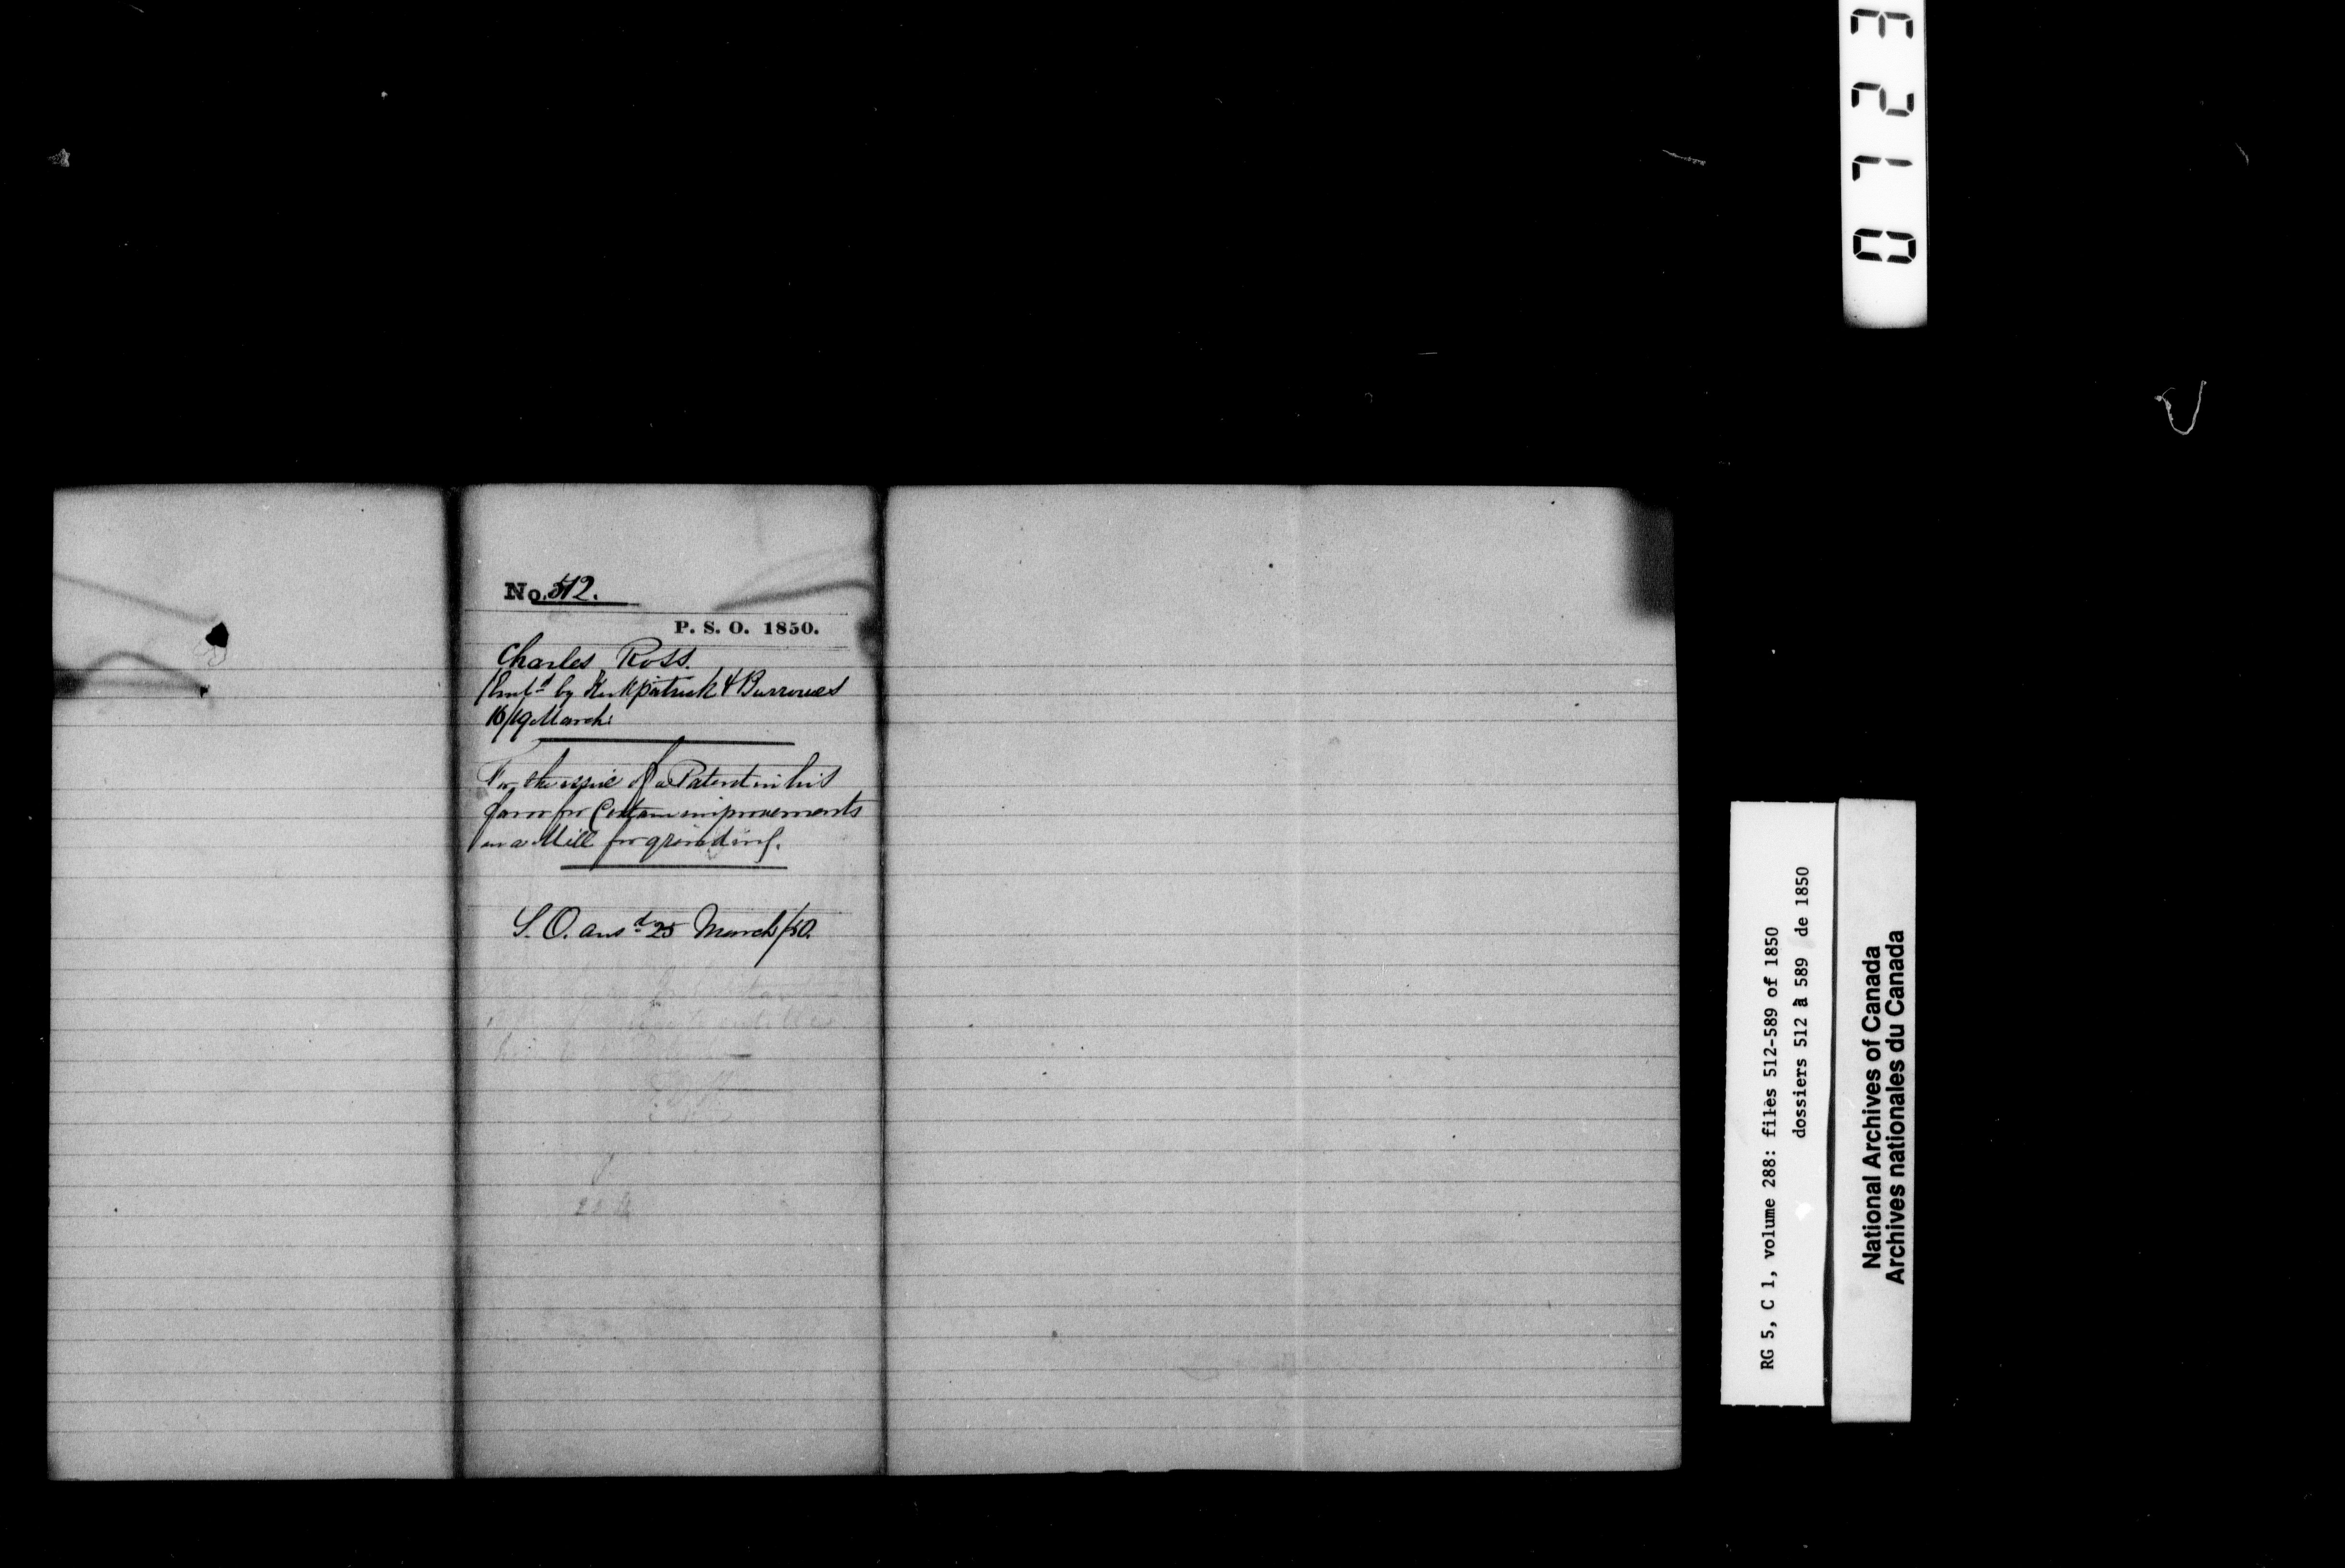 No. 512.
P. S. O. 1850.
Charles Ross.
by Kirkpatrick & Burrowes
16/19 March
For the issue of a Patent in his
favor for Certain improvements
in a Mill for grinding.
S. O. ansd 25 March/50.
0123
RG 5, C 1, volume 288: files 512-589 of 1850
dossiers 512 à 589 de 1850
National Archives of Canada
Archives nationales du Canada